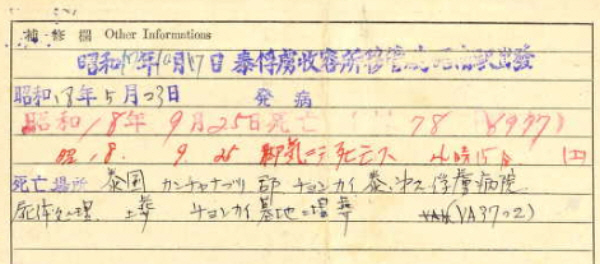 補修欄 Other Informations
昭和17年10月17日 泰俘虜收容所移管 昭南 出發
昭和18年5月23日 発病
昭和18年9月25日死亡 78 (V977)
昭18. 9. 25 脚気ニテ死亡ス 時15分
死亡場所 泰国カンチャナブリ郡チョンカイ泰 俘虜病院
死体処理 土葬 チョンカイ墓地ニ埋葬 (VA3702)